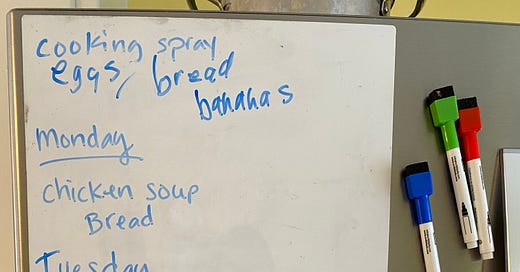 cooking spray
eggs, bread
bananas
Monday
chicken soup
Bread
Tuesday